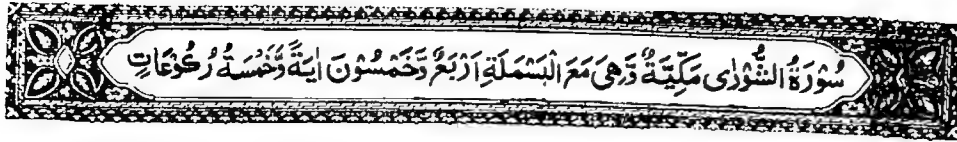 سُوْرَةُ الشُّوْرٰى مَكِّيَّةٌ وَّهِىَ مَعَ الْبَسْمَلَةِ اَرْبَعٌ وَّخَمْسُوْنَ اٰيَةً وَّخَمْسَةُ رُكُوْعَاتٍ